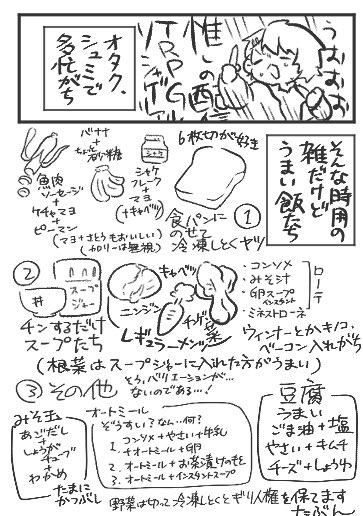 オタク、
シュミで
多忙がち
うおおお
推しの配
TRPG
ソシャゲ
そんな時用の
雑だけど
うまい飯たち
6枚切が好き
①
食パンに
のせて
冷凍しとくヤツ
バナナ
+
ちょっと砂糖
シャケ
シャケ
フレーク
+
マヨ
(+キャベツ)
魚肉
ソーセージ
+
ケチャマヨ
+
ピーマン
(マヨ+さとうもおいしい)
(カロリーは無視)
②
スープ
ジャー
チンするだけ
スープたち
キャベツ
ニンジン
レギュラーメンツ
・コンソメ
・みそ汁
・卵スープ
インスタント
・ミネストローネ
ローテ
ウィンナーとかキノコ、
ベーコン入れがち
(根菜はスープジャーに入れた方がうまい)
③その他
そろバリエーションが…
ないのである…!
みそ玉
あごだし
+
しょうが
チューブ
+
わかめ
たまに
かつぶし
オートミール
ぞうすい?なん…何?
コンソメ+やさい+牛乳
1. +オートミール+卵
2. オートミール+お茶漬けのもと
3. オートミール+インスタントスープ
豆腐
うまい
ごま油+塩
やさい+キムチ
チーズ+しょうゆ
野菜は切って冷凍しとくとギリ人権を保てます
たぶん